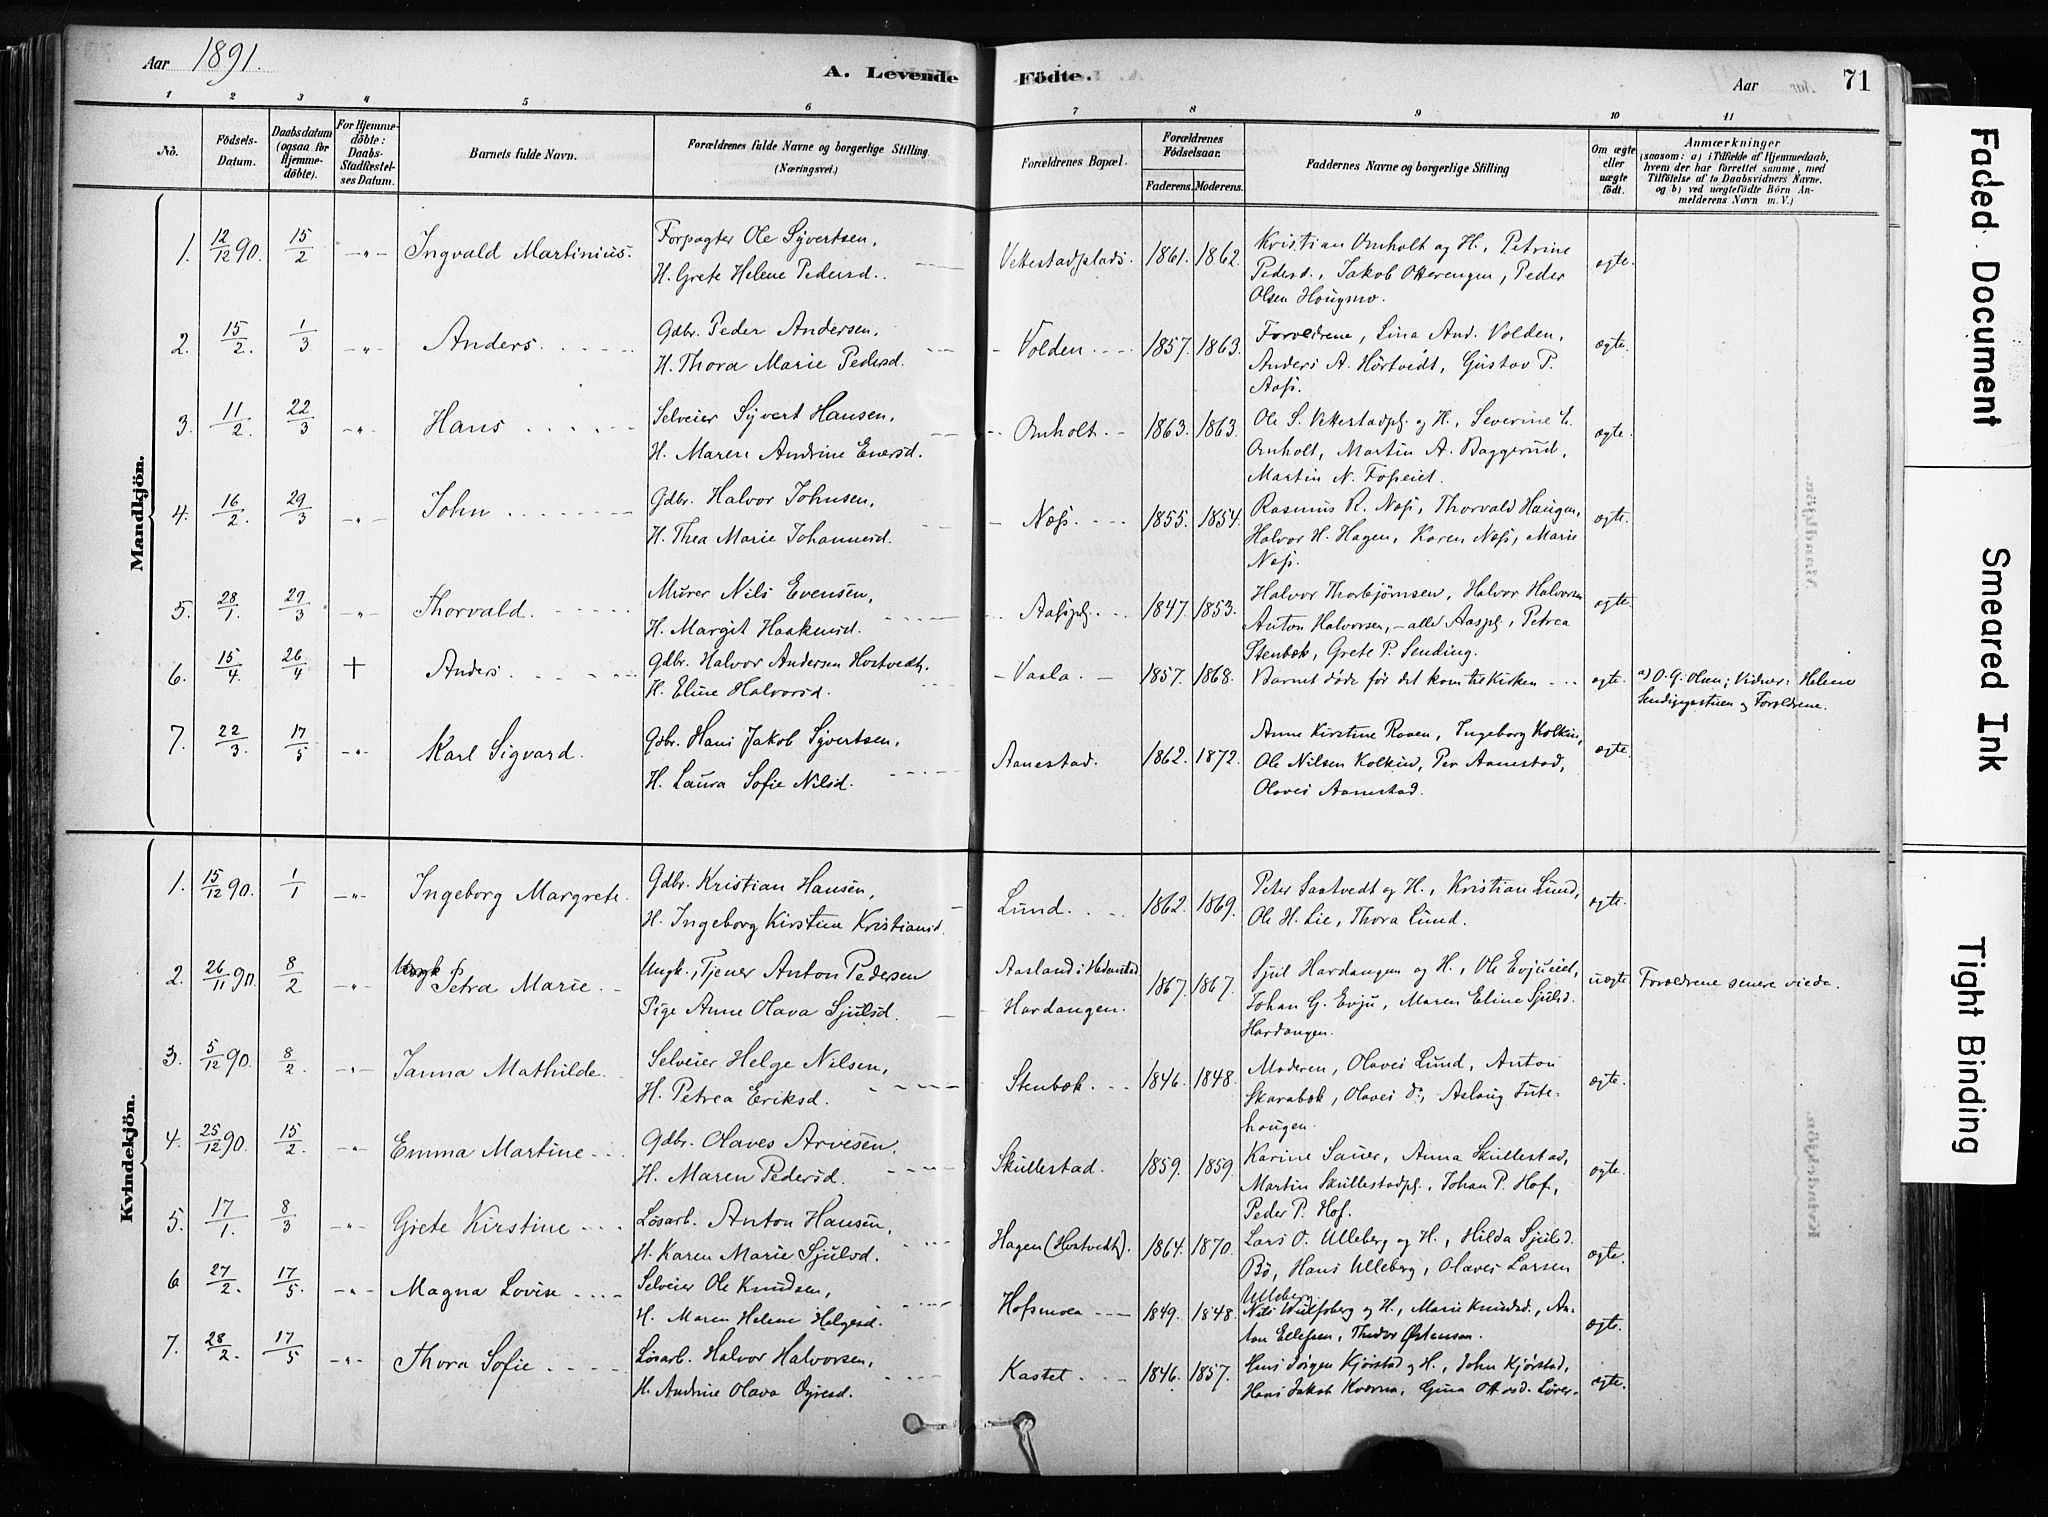 Aar 1891.
A. Levende Födte.
Aar 71
1 2 3 4 5 6 7 8 9 10 11
No.
Födsels-Datum.
Daabsdatum (ogsaa for Hjemmedöbte).
For Hjemmedöbte: Daabs-Stadfæstelses Datum.
Barnets fulde Navn.
Forældrenes fulde Navne og borgerlige Stilling. (Næringsvei.)
Forældrenes Bopæl.
Forældrenes Födselsaar.
Faderens. Moderens.
Faddernes Navne og borgerlige Stilling
Om ægte eller uægte födt.
Anmærkninger
(saasom: a) i Tilfælde af Hjemmedaab,
hvem der har forrettet samme, med
Tilföielse af to Daabsvidners Navne.
og b) ved uægtefödte Börn Anmelderens Navn m. V.)
Mandkjön.
1. 12/12 90. 15/2 -„- Ingvald Martinius. Forpagter Ole Syvertsen, Vettestadplads. 1861. 1862. Kristian Omholt og H., Petrine ægte.
H. Grete Helene Pedersd. Pedersd., Jakob Otterengen, Peder
Olsen Hougmo.
2. 15/2. 1/3 -„- Anders. Gdbr. Peder Andersen, Volden 1857. 1863. Forældrene, Lina And. Volden, ægte.
H. Thora Marie Pedersd. Anders A. Hörtvedt, Gustav P.
Aas.
3. 11/2. 22/3 -„- Hans Selveier Syvert Hansen, Omholt. 1863. 1863. Ole S. Vettestadpl. og H., Severine E. ægte.
H. Maren Andrine Enersd. Omholt, Martin A. Baggerud,
Martin N. Fosseiet.
4. 16/2. 29/3 -„- John Gdbr. Halvor Johnsen, Næss. 1855. 1854. Rasmus R. Næss, Thorvald Haugen, ægte.
H. Thea Marie Johannesd. Halvor H. Hagen, Karen Næss, Marie
Næss.
5. 28/1. 29/3 -„- Thorvald. Murer Nils Evensen, Aaspl. 1847. 1853. Halvor Thorbjørnsen, Halvor Halvorsen ægte.
H. Margit Haakensd. Anton Halvorsen, – alle Aaspl., Petrea
Stenbæk, Grete P. Sending.
6. 15/4. 26/4 + Anders. Gdbr. Halvor Andersen Hostvedt. Vaala. 1857. 1868. Barnet døde før det kom til Kirken ægte. a) O. G. Olsen; Vidner: Helene
H. Eline Halvorsd. og Forældrene.
7. 22/3. 17/5 -„- Karl Sigvard. Gdbr. Hans Jakob Syvertsen, Aanestad. 1862. 1872. Anne Kirstine Raaen, Ingeborg Kolkin, ægte
H. Laura Sofie Nilsd. Ole Nilsen Kolkin, Per Aanestad,
Olaves Aanestad.
Kvindekjön.
1. 15/12 90. 1/1 -„- Ingeborg Margrete. Gdbr. Kristian Hansen, Lund. 1862. 1869. Peter Saatvedt og H., Kristian Lund, ægte.
H. Ingeborg Kirstine Kristiansd. Ole H. Lie, Thora Lund.
2. 26/11 90. 8/2 -„- Petra Marie. Ungk., Tjener Anton Pedersen Aasland i Hedenstad 1867. 1867. Sjul Hardangen og H., Ole Evjueiet, uægte. Forældrene senere viede.
Pige Anne Olava Sjulsd. Hardangen. Johan G. Evju, Maren Eline Sjulsd.
Hardangen.
3. 5/12 90. 8/2 -„- Janna Mathilde Selveier Helge Nilsen, Stenbæk. 1846. 1848. Moderen, Olaves Lund, Anton ægte.
H. Petrea Eriksd. Skarabæk, Olaves do., Aslaug Tute-
hougen.
4. 25/12 90. 15/2 -„- Emma Martine Gdbr. Olaves Arvesen, Skullestad. 1859. 1859 Karine Sauer, Anna Skullestad, ægte.
H. Maren Pedersd. Martin Skullestadpl., Johan P. Hof,
Peder P. Hof.
5. 17/1. 8/3 -„- Grete Kirstine Løsarb. Anton Hansen, Hagen (Hostvedt). 1864. 1870. Lars O. Ulleberg og H., Hilda Sjulsd. ægte.
H. Karen Marie Sjulsd. Bö, Hans Ulleberg, Olaves Larsen
Ulleberg.
6 27/2. 17/5. -„- Magna Lovise Selveier Ole Knudsen, Hofsmoen 1849. 1848. Nils Wulfsberg og H., Marie Knudsd., An- ægte.
H. Maren Helene Helgesd. ton Ellefsen, Thedor Østensen.
7. 28/2. 17/5 -„- Thora Sofie Løsarb. Halvor Halvorsen, Kastet. 1846. 1857. Hans Jörgen Kjörstad og H., John Kjörstad, ægte.
H. Andrine Olava Hans Jakob Kværna, Gina Ottersd.
Faded Document
Smeared Ink
Tight Binding